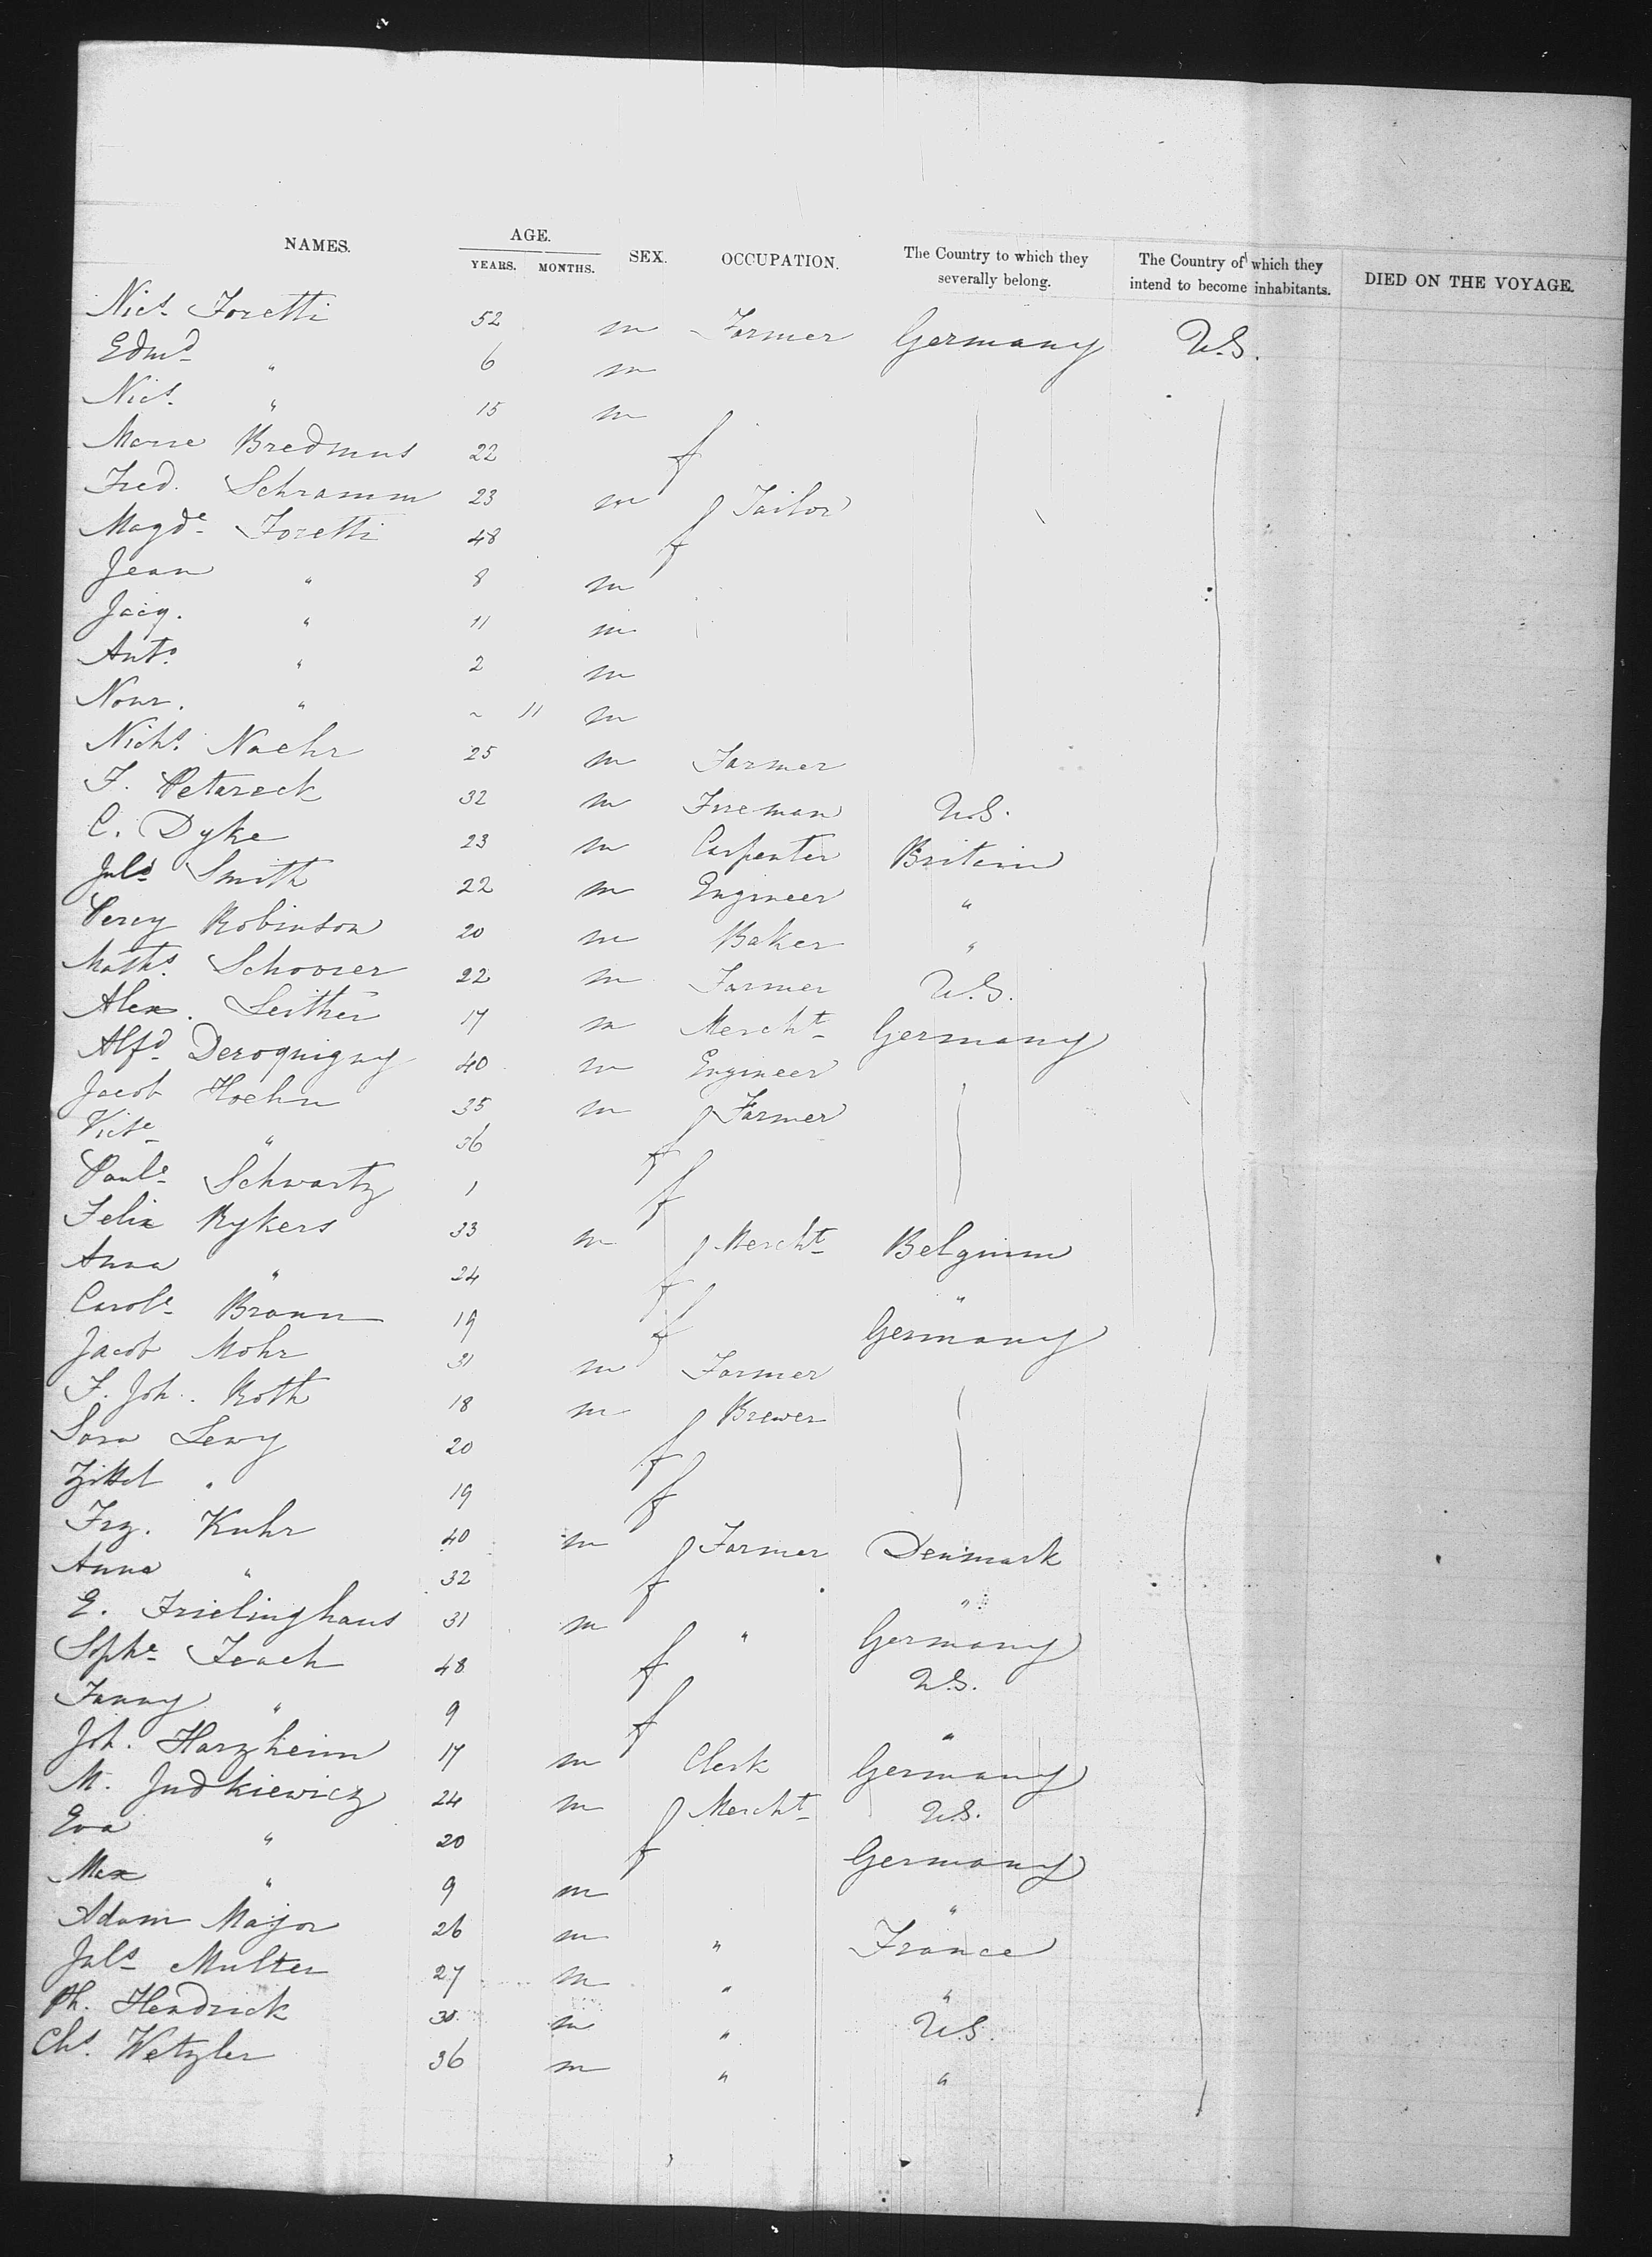 NAMES. AGE. YEARS. MONTHS. SEX. OCCUPATION. The Country to which they severally belong. The Country of which they intend to become inhabitants. DIED ON THE VOYAGE.
Nics. Foretti 52 m Farmer Germany U.S.
Edmd " 6 m
Nics. " 15 m
Marie Bredmus 22 f
Fred. Schramm 23 m Tailor
Magde Foretti 48 f
Jean " 8 m
Jacq. " 11 m
Anto. " 2 m
" ~ 11 m
Nichs. Naehr 25 m Farmer
F. Petareck 32 m Fireman U.S.
C. Dyke 23 m Carpenter Britain
Juls Smith 22 m Engineer "
Percy Robinson 20 m Baker "
Maths. Schoorer 22 m Farmer U.S.
Alex. 17 m Mercht Germany
Alfd Deroquigny 40 m Engineer
Jacob Hoehn 35 m Farmer
Victe " 36 f
Paule Schwartz 1 f
Felix Rykers 33 m Mercht Belgium
Anna " 24 f "
Carole Braun 19 f Germany
Jacob Mohr 31 m Farmer
F. Joh. Roth 18 m Brewer
Sara Lewy 20 f
Zittel " 19 f
Frz. Kuhr 40 m Farmer Denmark
Anna " 32 f "
E. Frielinghaus 31 m " Germany
Sophe 48 f U.S.
Fanny " 9 f "
Joh. Harzheim 17 m Clerk Germany
M. Judkiewicz 24 m Mercht U.S.
Eva " 20 f Germany
Max " 9 m "
Adam Major 26 m " France
Juls Multer 27 m " "
Ph. Hendrick 30 m " U.S.
Chs. Wetzler 36 m " "